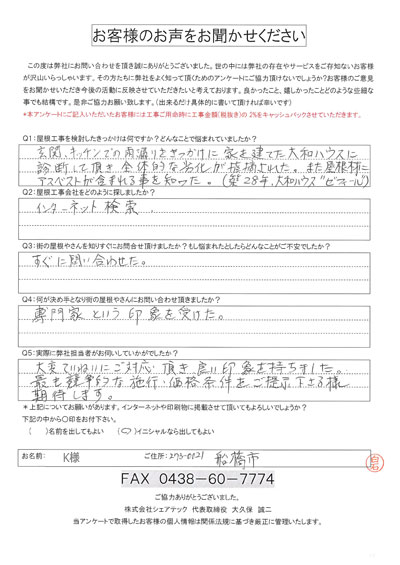 お客様のお声をお聞かせください
この度は弊社にお問い合わせを頂き誠にありがとうございました。世の中には弊社の存在やサービスをご存知ないお客様
が沢山いらっしゃいます。その方たちに弊社をよく知って頂くためのアンケートにご協力頂けないでしょうか?お客様のご意見
をお聞かせいただき今後の活動に反映させていただきたいと考えております。良かったこと、嬉しかったことどのような些細な
事でも結構です。是非ご協力お願い致します。(出来るだけ具体的に書いて頂ければ幸いです)
*本アンケートにご記入いただいたお客様には工事ご用命時に工事金額(税抜き)の2%をキャッシュバックさせていただきます。
Q1:屋根工事を検討したきっかけは何ですか?どんなことで悩まれていましたか?
玄関、キッチンでの雨漏りをきっかけに家を建てた大和ハウスに
診断して頂き全体的な劣化が指摘された。また屋根材に
アスベストが含まれる事を知った。(築28年、大和ハウス
Q2:屋根工事会社をどのように探しましたか?
インターネット検索
Q3:街の屋根やさんを知りすぐにお問合せ頂けましたか?もし悩まれたとしたらどんなことがご不安でしたか?
すぐに問い合わせた。
Q4:何が決め手となり街の屋根やさんにお問い合わせ頂きましたか?
専門家という印象を受けた。
Q5:実際に弊社担当者がお伺いしていかがでしたか?
大変ていねいにご対応頂き良い印象を持ちました。
最も競争的な施行・価格条件をご提示下さる様
期待します。
*上記についてお願いがあります。インターネットや印刷物に掲載させて頂いてもよろしいでしょうか?
下記の中から〇印をお付け下さい。
( )名前を出してもよい (〇)イニシャルなら出してもよい
お名前: K様 ご住所: 273-0121 船橋市
FAX 0438-60-7774
ご協力ありがとうございました。
株式会社シェアテック 代表取締役 大久保 誠二
当アンケートで取得したお客様の個人情報は関係法規に基づき厳正に管理いたします。